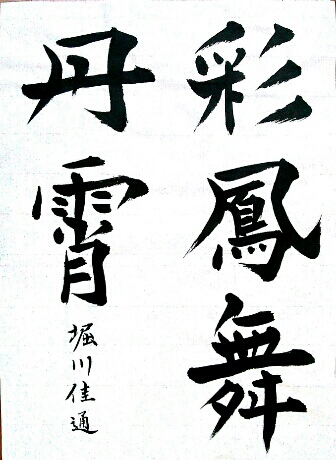 彩鳳舞
丹霄
堀川佳通